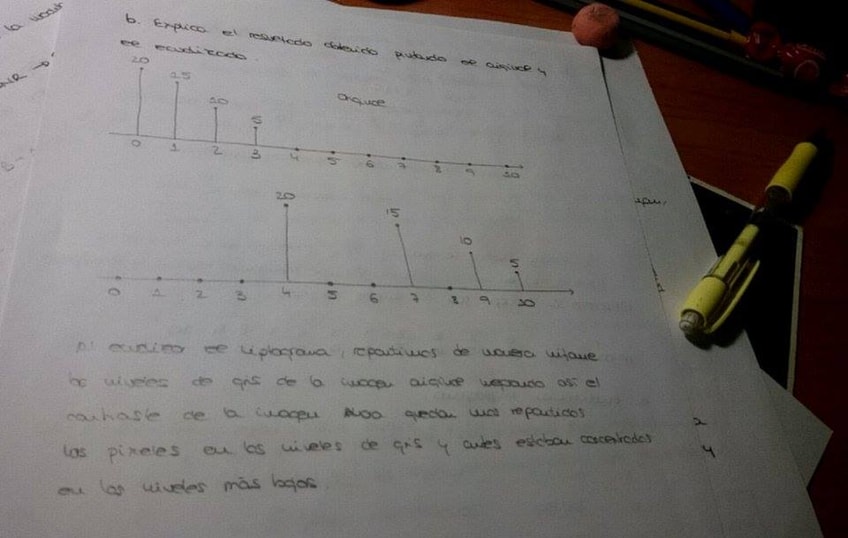 b. Explica el resultado obtenido pintando el origen y
el ecualizado.
20
15
10
5
origen
0 1 2 3 4 5 6 7 8 9 10
20
15
10
5
0 1 2 3 4 5 6 7 8 9 10
Al ecualizar el histograma, repartimos de manera uniforme
los niveles de gris de la imagen origen mejorando así el
contraste de la imagen quedan más repartidos
los píxeles en los niveles de gris y antes estaban concentrados
en los niveles más bajos.
2
4